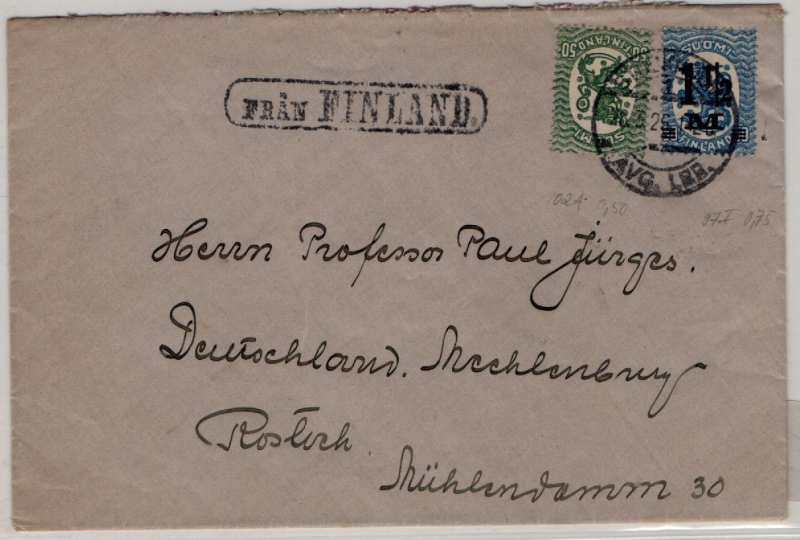 FRÅN FINLAND.
50 FINLAND 50
SUOMI
SUOMI
1½
M
FINLAND
AVG. LBR.
102A 0,50
97I 0,75
Herrn Professor Paul Jürges.
Deutschland. Mecklenburg
Rostock.
Mühlendamm 30